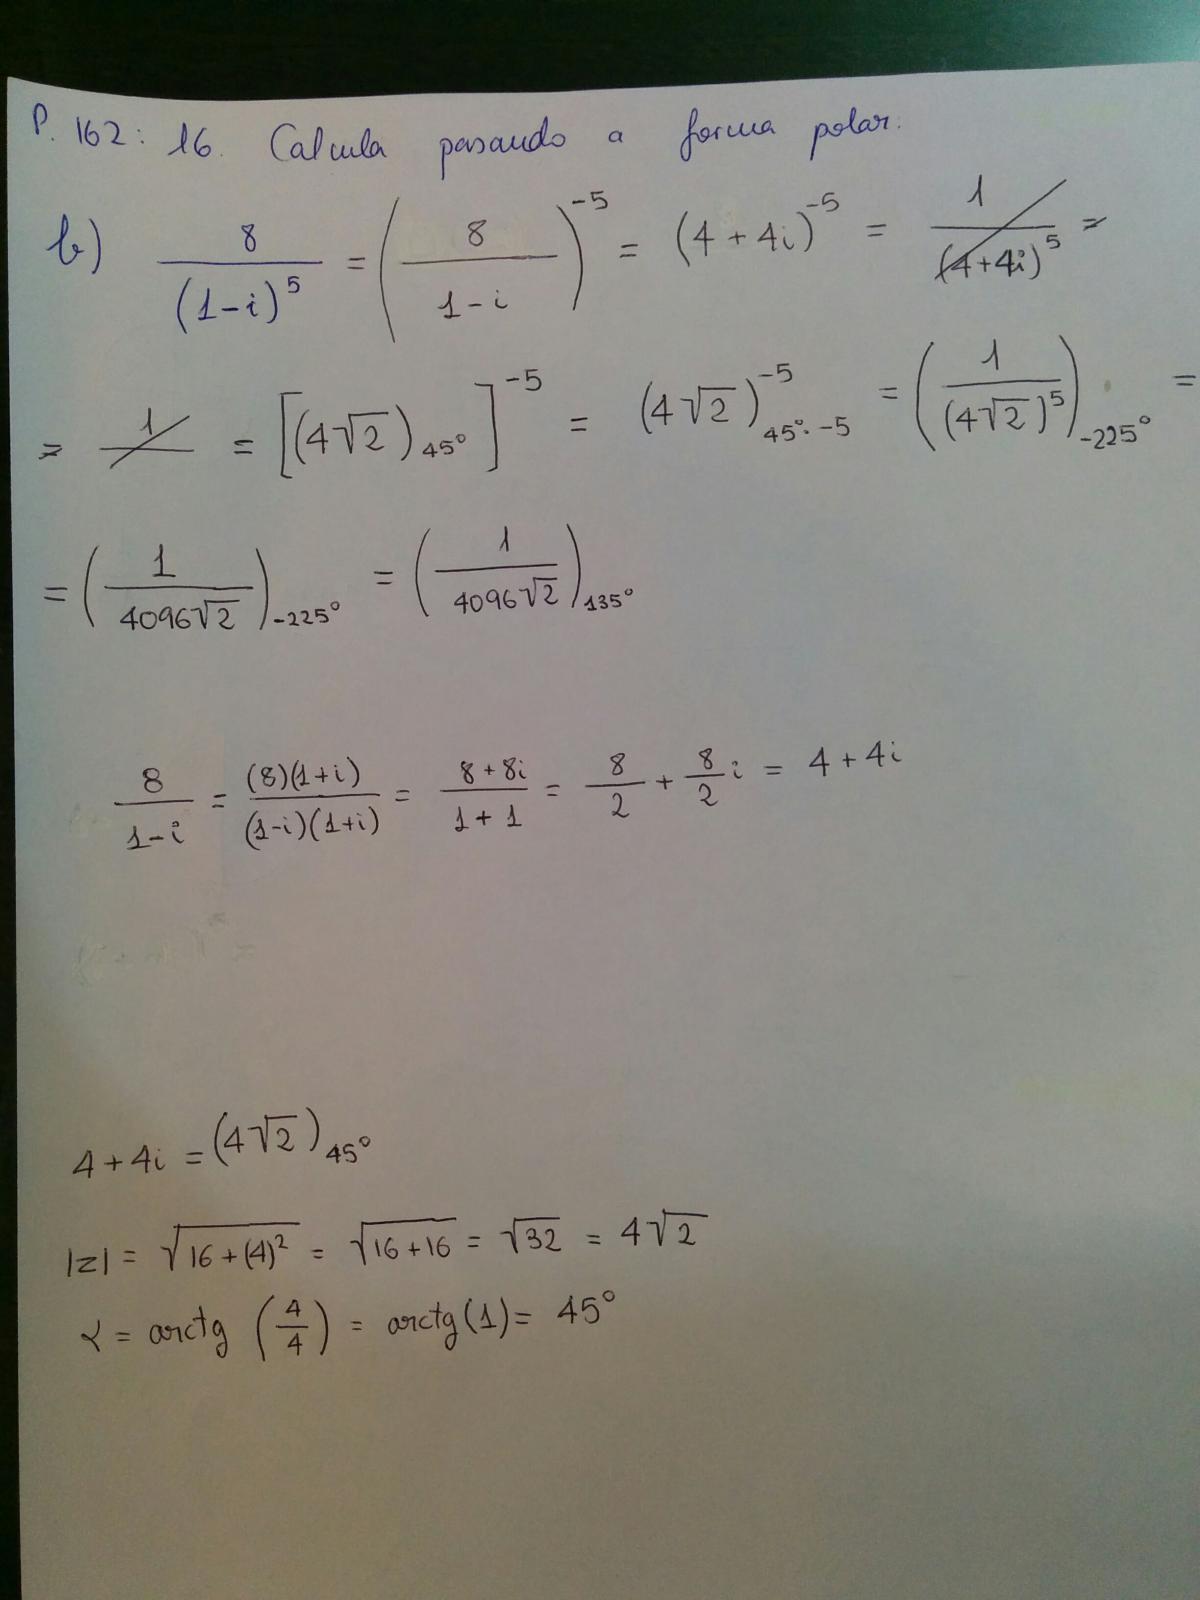 P. 162: 16. Calcula pasando a forma polar:
b) 8/(1-i)^5 = (8/(1-i))^-5 = (4+4i)^-5 = 1/(4+4i)^5 =
= 1/ = [(4√2)_45°]^-5 = (4√2)^-5_45°·-5 = (1/(4√2)^5)_-225° =
= (1/4096√2)_-225° = (1/4096√2)_135°
8/(1-i) = (8)(1+i)/(1-i)(1+i) = (8+8i)/(1+1) = 8/2 + 8/2 i = 4+4i
4+4i = (4√2)_45°
|z| = √(16+(4)^2) = √(16+16) = √32 = 4√2
α = arctg (4/4) = arctg(1) = 45°